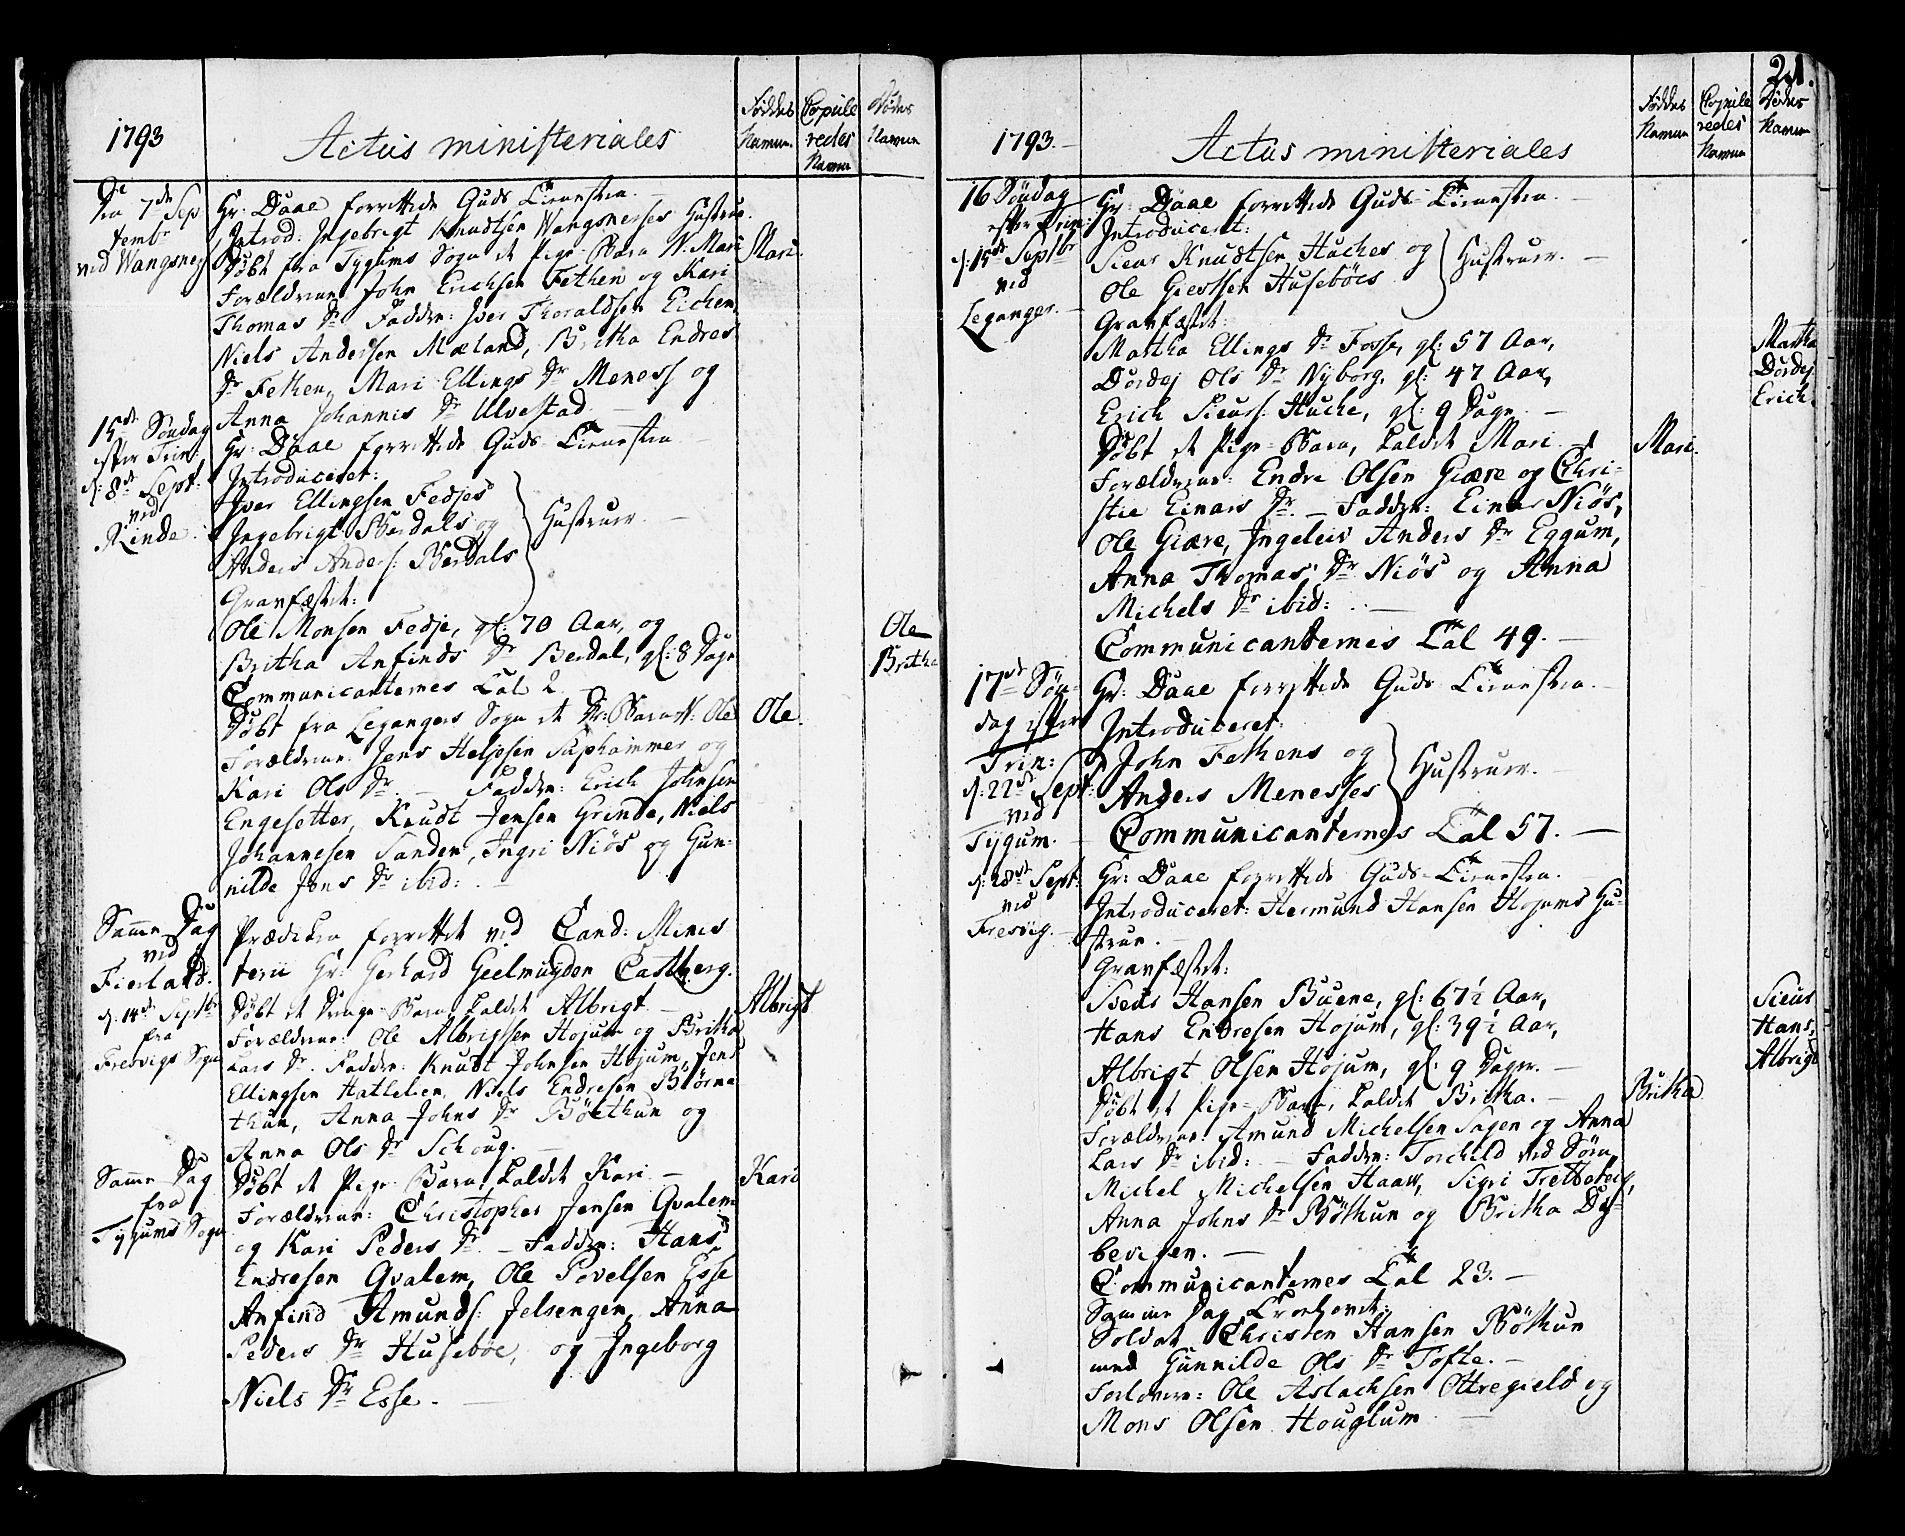 1793
Actus ministeriales
Föddes Namn.
Copule redes Namn
Dödes Namn
Den 7de Sep
tembr
ved Wangsnes
Hr: Daae forrettede Guds Tienesten.
Introd: Ingebrigt Knudtsen Wangsnesses Hustrue.
Döbt fra Tygums Sogn et Pige Barn N. Mari
Mari.
Forældrene John Erichsen Fethen og Kari
Thomas Dr Faddere: Iver Thoraldsen Eichen,
Niels Andersen Mæland, Britha Endres
Dr Fethen, Mari Ellings Dr Meness og
Anna Johannis Dr Ulvestad
15de Söndag
efter Trin:
d: 8de Sept:
ved
Rinde
Hr: Daae forrettede Guds Tienesten
Introduceret:
Iver Ellingsen Fedjes
Ingebrigt Berdals og
Anders Anders: Berdals
Hustruer.
Gravfæstet:
Ole Monsen Fedje, gl: 70 Aar, og
Ole
Britha Anfinds Dr Berdal, gl: 8 Dage
Britha
Communicanternes Tal 2
Döbt fra Legangers Sogn et Dr: Barn N: Ole
Ole.
Forældrene Jens Heljesen Suphammer og
Kari Ols Dr. Faddere: Erich Johnsen
Engesetter, Knudt Jensen Grinde, Niels
Johannesen Sanden, Ingri Niös og Gun-
nilde Jens Dr ibid:
Samme Dag
ved
Fierland.
Prædiken forrettet ved Cand: Minis
terii Hr: Gerhard Geelmuyden Castberg.
d: 14de Septbr
fra
Fresvigs Sogn
Döbt et Drenge Barn kaldet Albrigt
Albrigt
Forældrene: Ole Albrigtsen Hojum og Britha
Lars Dr. Faddere: Knudt Johnsen Hojum, Jens
Ellingsen Hatlelien, Niels Endresen Biörne
thun, Anna Johns Dr Böthun og
Anna Ols Dr Schoug.
Samme Dag
fra
Tygums Sogn
Döbt et Pige Barn kaldet Kari
Kari
Forældrene: Christopher Jensen Qvalem
og Kari Peders Dr. Faddere: Hans
Endresen Qvalem, Ole Povelsen Esse
Anfind Amunds: Jelsengen, Anna
Peders Dr Husebøe, og Ingeborg
Niels Dr Esse.
21.
1793.
Actus ministeriales
Föddes Namn
Copule redes Namn
Dödes Namn
16 Söndag
efter Trin:
d: 15de Septbr
ved
Leganger.
Hr: Daae forrettede Guds Tienesten.
Introduceret:
Sieur Knudtsen Huches og
Ole Giertsen Huseböes
Hustruer.
Gravfæstet:
Martha Ellings Dr Fosse, gl: 57 Aar,
Martha
Dordej Ols Dr Nyborg, gl: 47 Aar,
Dordej
Erich Sieurs: Huche, gl: 9 Dage
Erich
Döbt et Pige-Barn, kaldet Mari
Mari.
Forældrene: Endre Olsen Giære og Chri-
stie Einars Dr. Faddere: Einar Niös,
Ole Giære, Ingeleiv Anders Dr Eggum,
Anna Thomas Dr Niös og Anna
Michels Dr ibid:
Communicanternes Tal 49.
17de Sön-
dag efter
Trin:
d: 22de Sept:
ved
Tygum.
Hr: Daae forrettede Guds Tienesten.
Introduceret:
John Fethens og
Anders Menesses
Hustruer.
Communicanternes Tal 57.
d: 28de Sept:
ved
Fresvig.
Hr: Daae forrettede Guds-Tienesten.
Introduceret: Hermund Hansen Hojums Hu-
strue.
Gravfæstet:
Sieur Hansen Buene, gl: 67½ Aar,
Sieur
Hans Endresen Hojum, gl: 39½ Aar,
Hans,
Albrigt Olsen Hojum, gl: 9 Dager.
Albrigt
Döbt et Pige-Barn, kaldet Britha.
Britha
Forældrene: Amund Michelsen Sagen og Anna
Lars Dr ibid: Faddere: Torchild ved Söen,
Michel Michelsen Haaw, Sigri Tretteteig,
Anna Johns Dr Böthun og Britha Dy-
bevigen.
Communicanternes Tal 23.
Samme Dag Troelovet:
Soldat Christen Hansen Böthun
med Gunnilde Ols Dr Tofte.
Forlovere: Ole Aslachsen Ottregield og
Mons Olsen Houglum